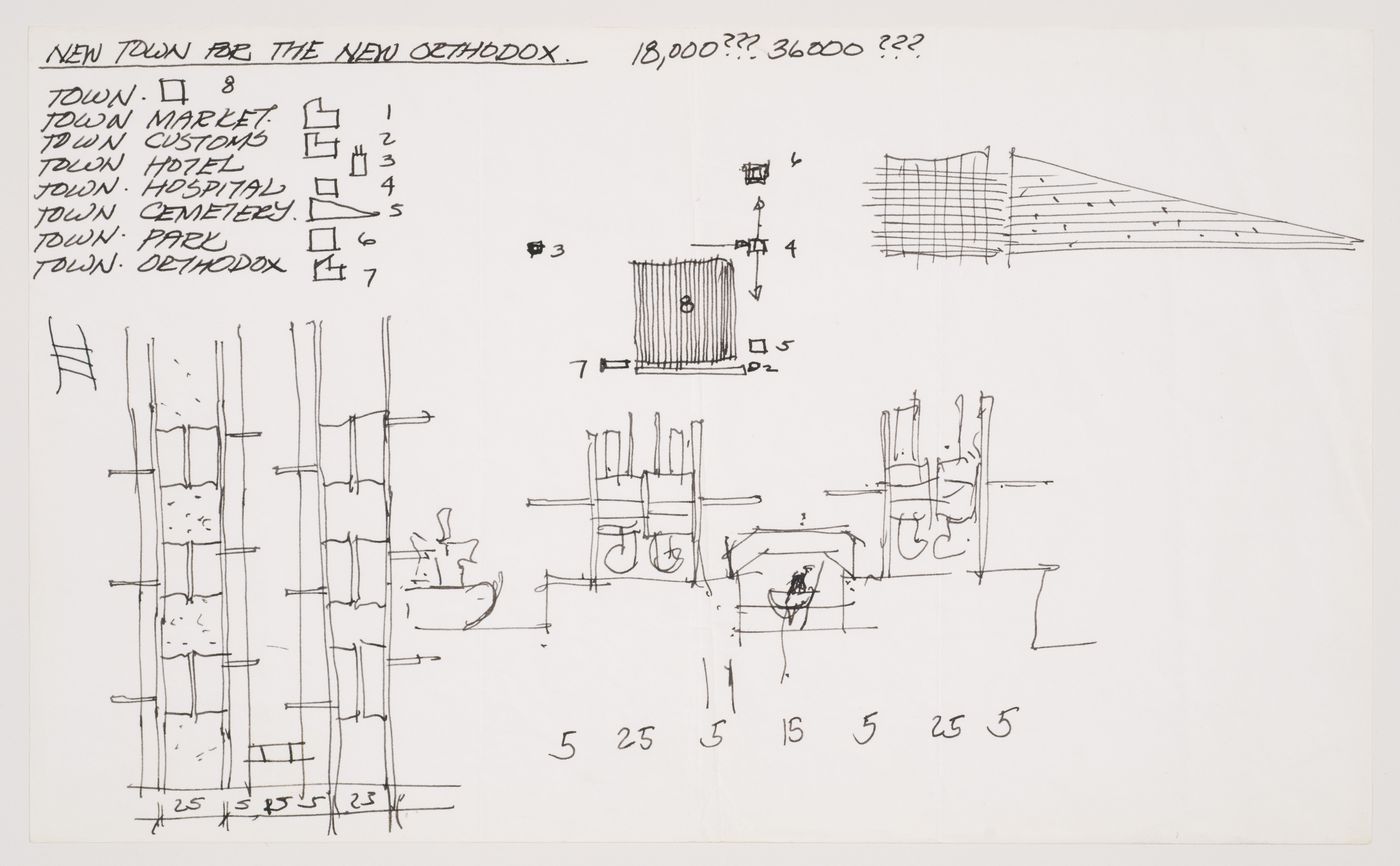 NEW TOWN FOR THE NEW ORTHODOX. 18,000??? 36000 ???
TOWN. 8
TOWN MARKET. 1
TOWN CUSTOMS 2
TOWN HOTEL 3
TOWN. HOSPITAL 4
TOWN CEMETERY. 5
TOWN. PARK 6
TOWN. ORTHODOX 7
6
3
4
8
5
7
2
5 25 5 15 5 25 5
25 5 15 5 23